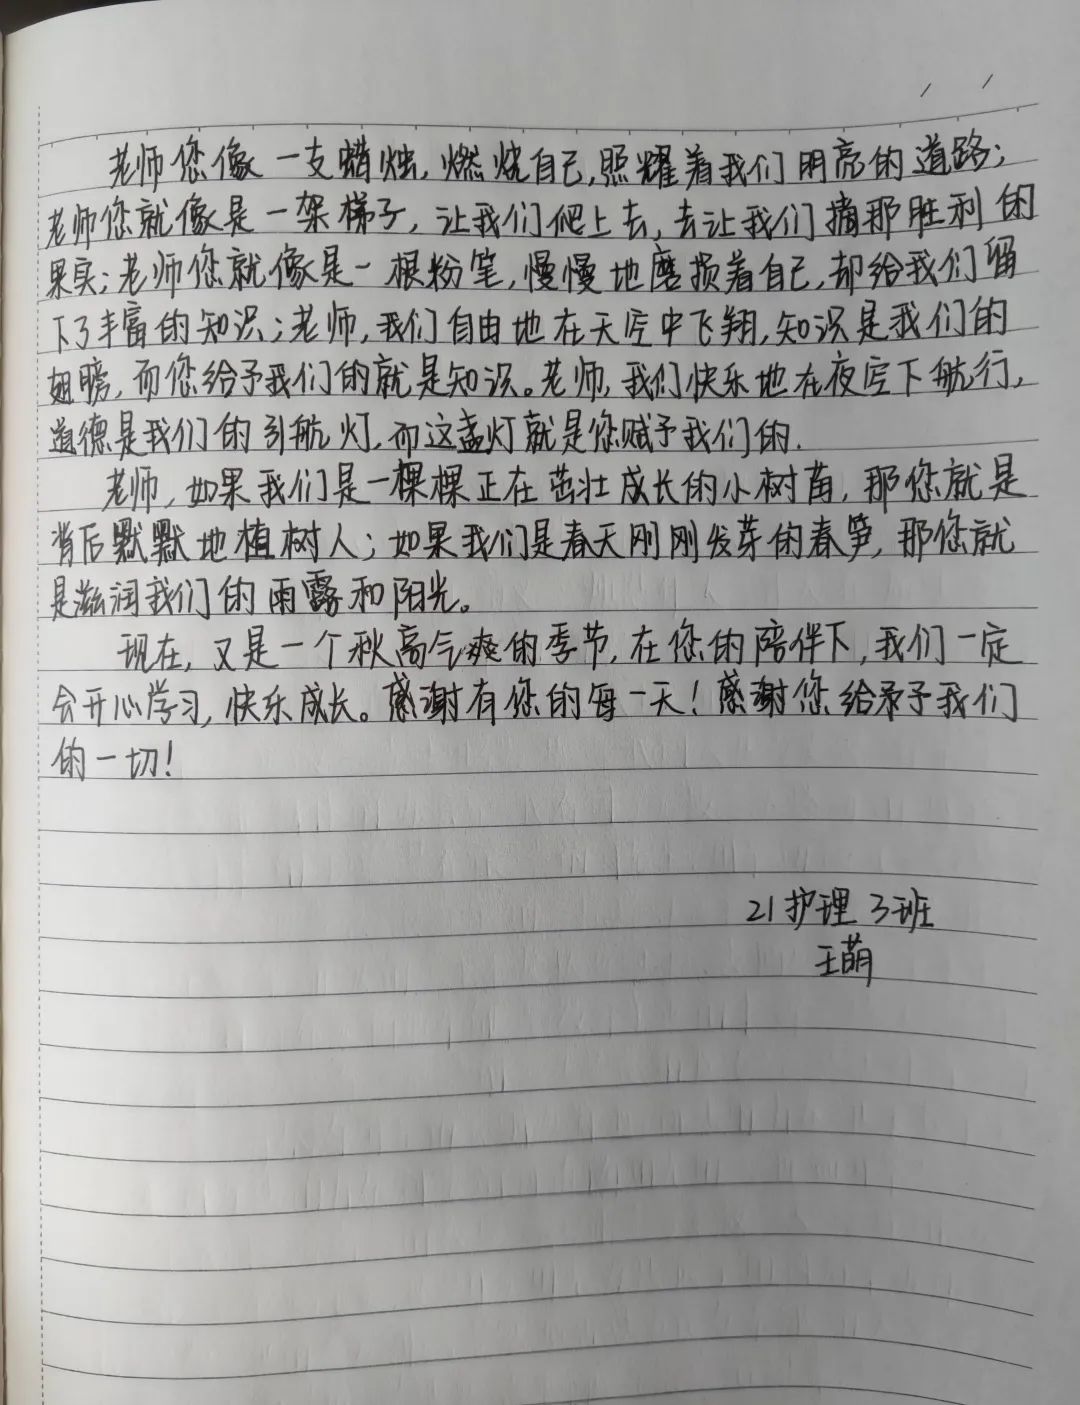 老师您像一支蜡烛,燃烧自己,照耀着我们明亮的道路;
老师您就像是一架梯子,让我们爬上去,去让我们摘那胜利的
果实;老师您就像是一根粉笔,慢慢地磨损着自己,却给我们留
下了丰富的知识;老师,我们自由地在天空中飞翔,知识是我们的
翅膀,而您给予我们的就是知识。老师,我们快乐地在夜空下航行,
道德是我们的引航灯,而这盏灯就是您赋予我们的.
老师,如果我们是一棵棵正在茁壮成长的小树苗,那您就是
背后默默地植树人;如果我们是春天刚刚发芽的春笋,那您就
是滋润我们的雨露和阳光。
现在,又是一个秋高气爽的季节,在您的陪伴下,我们一定
会开心学习,快乐成长。感谢有您的每一天!感谢您给予我们
的一切!
21护理3班
王萌